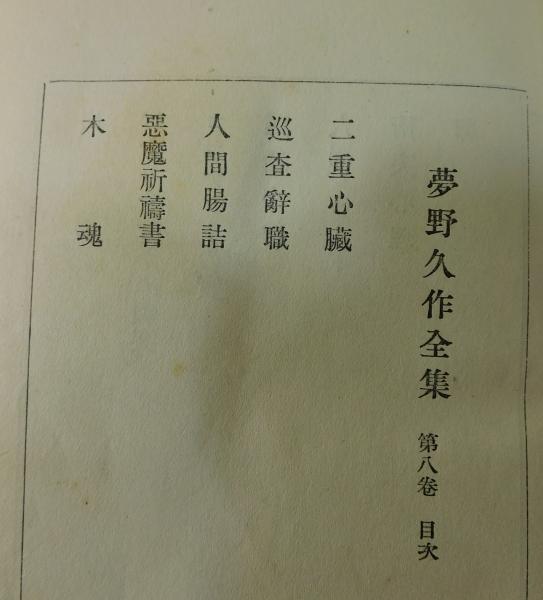 夢野久作全集 第八卷 目次
二重心臟
巡査辭職
人間腸詰
惡魔祈禱書
木魂